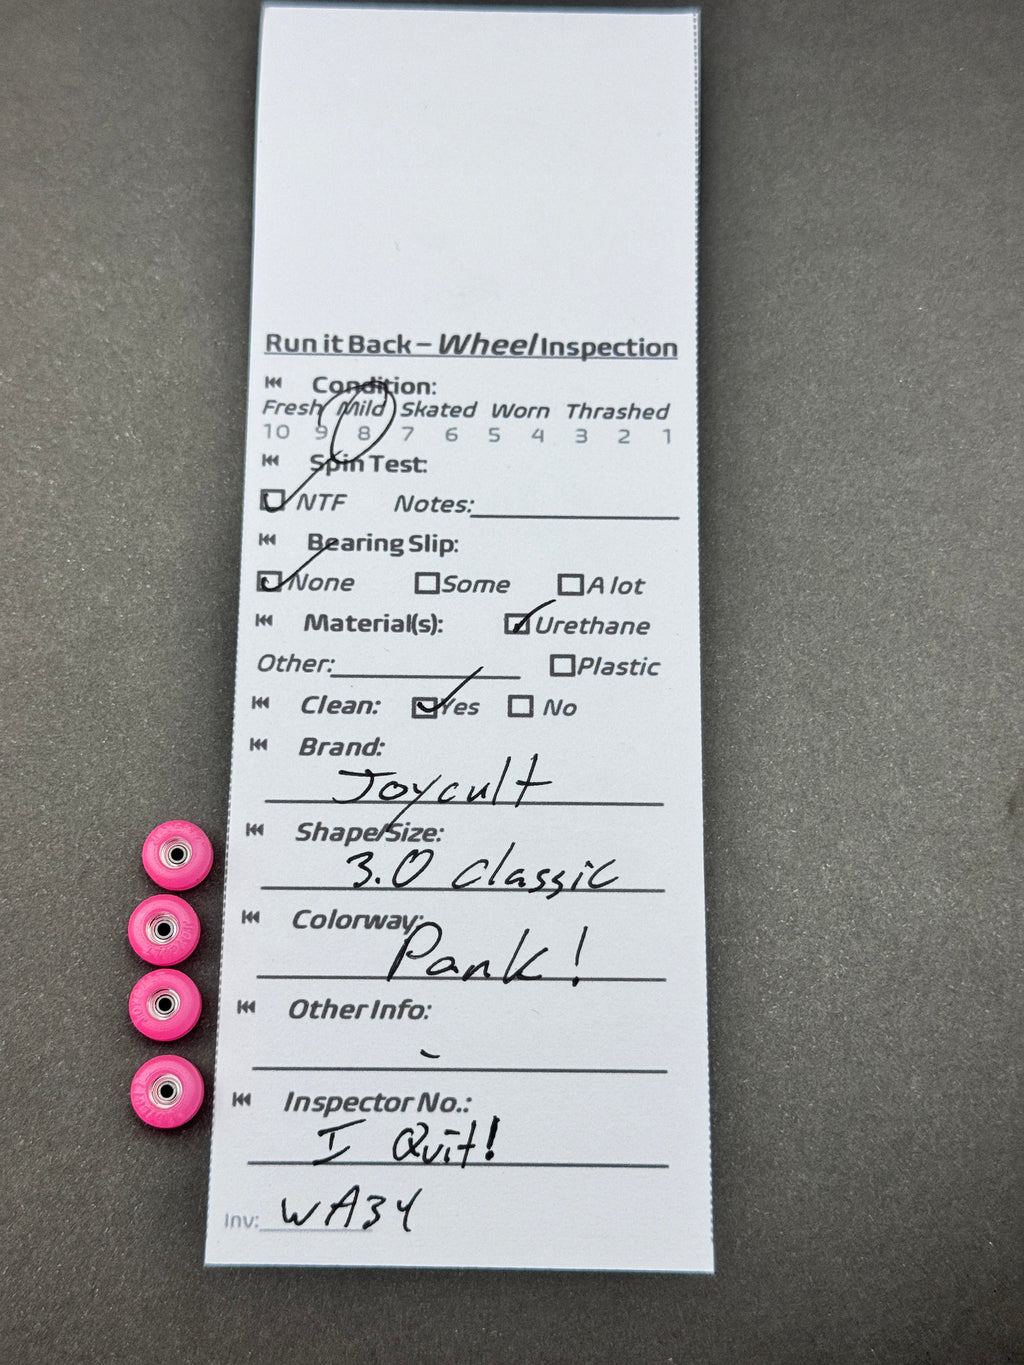 Run it Back – Wheel Inspection
Condition:
Fresh Mild Skated Worn Thrashed
10 9 8 7 6 5 4 3 2 1
Spin Test:
NTF Notes:
Bearing Slip:
None Some A lot
Material(s): Urethane
Other: Plastic
Clean: Yes No
Brand:
Joycult
Shape/Size:
3.0 Classic
Colorway:
Pank!
Other Info:
-
Inspector No.:
I Quit!
Inv: WA34